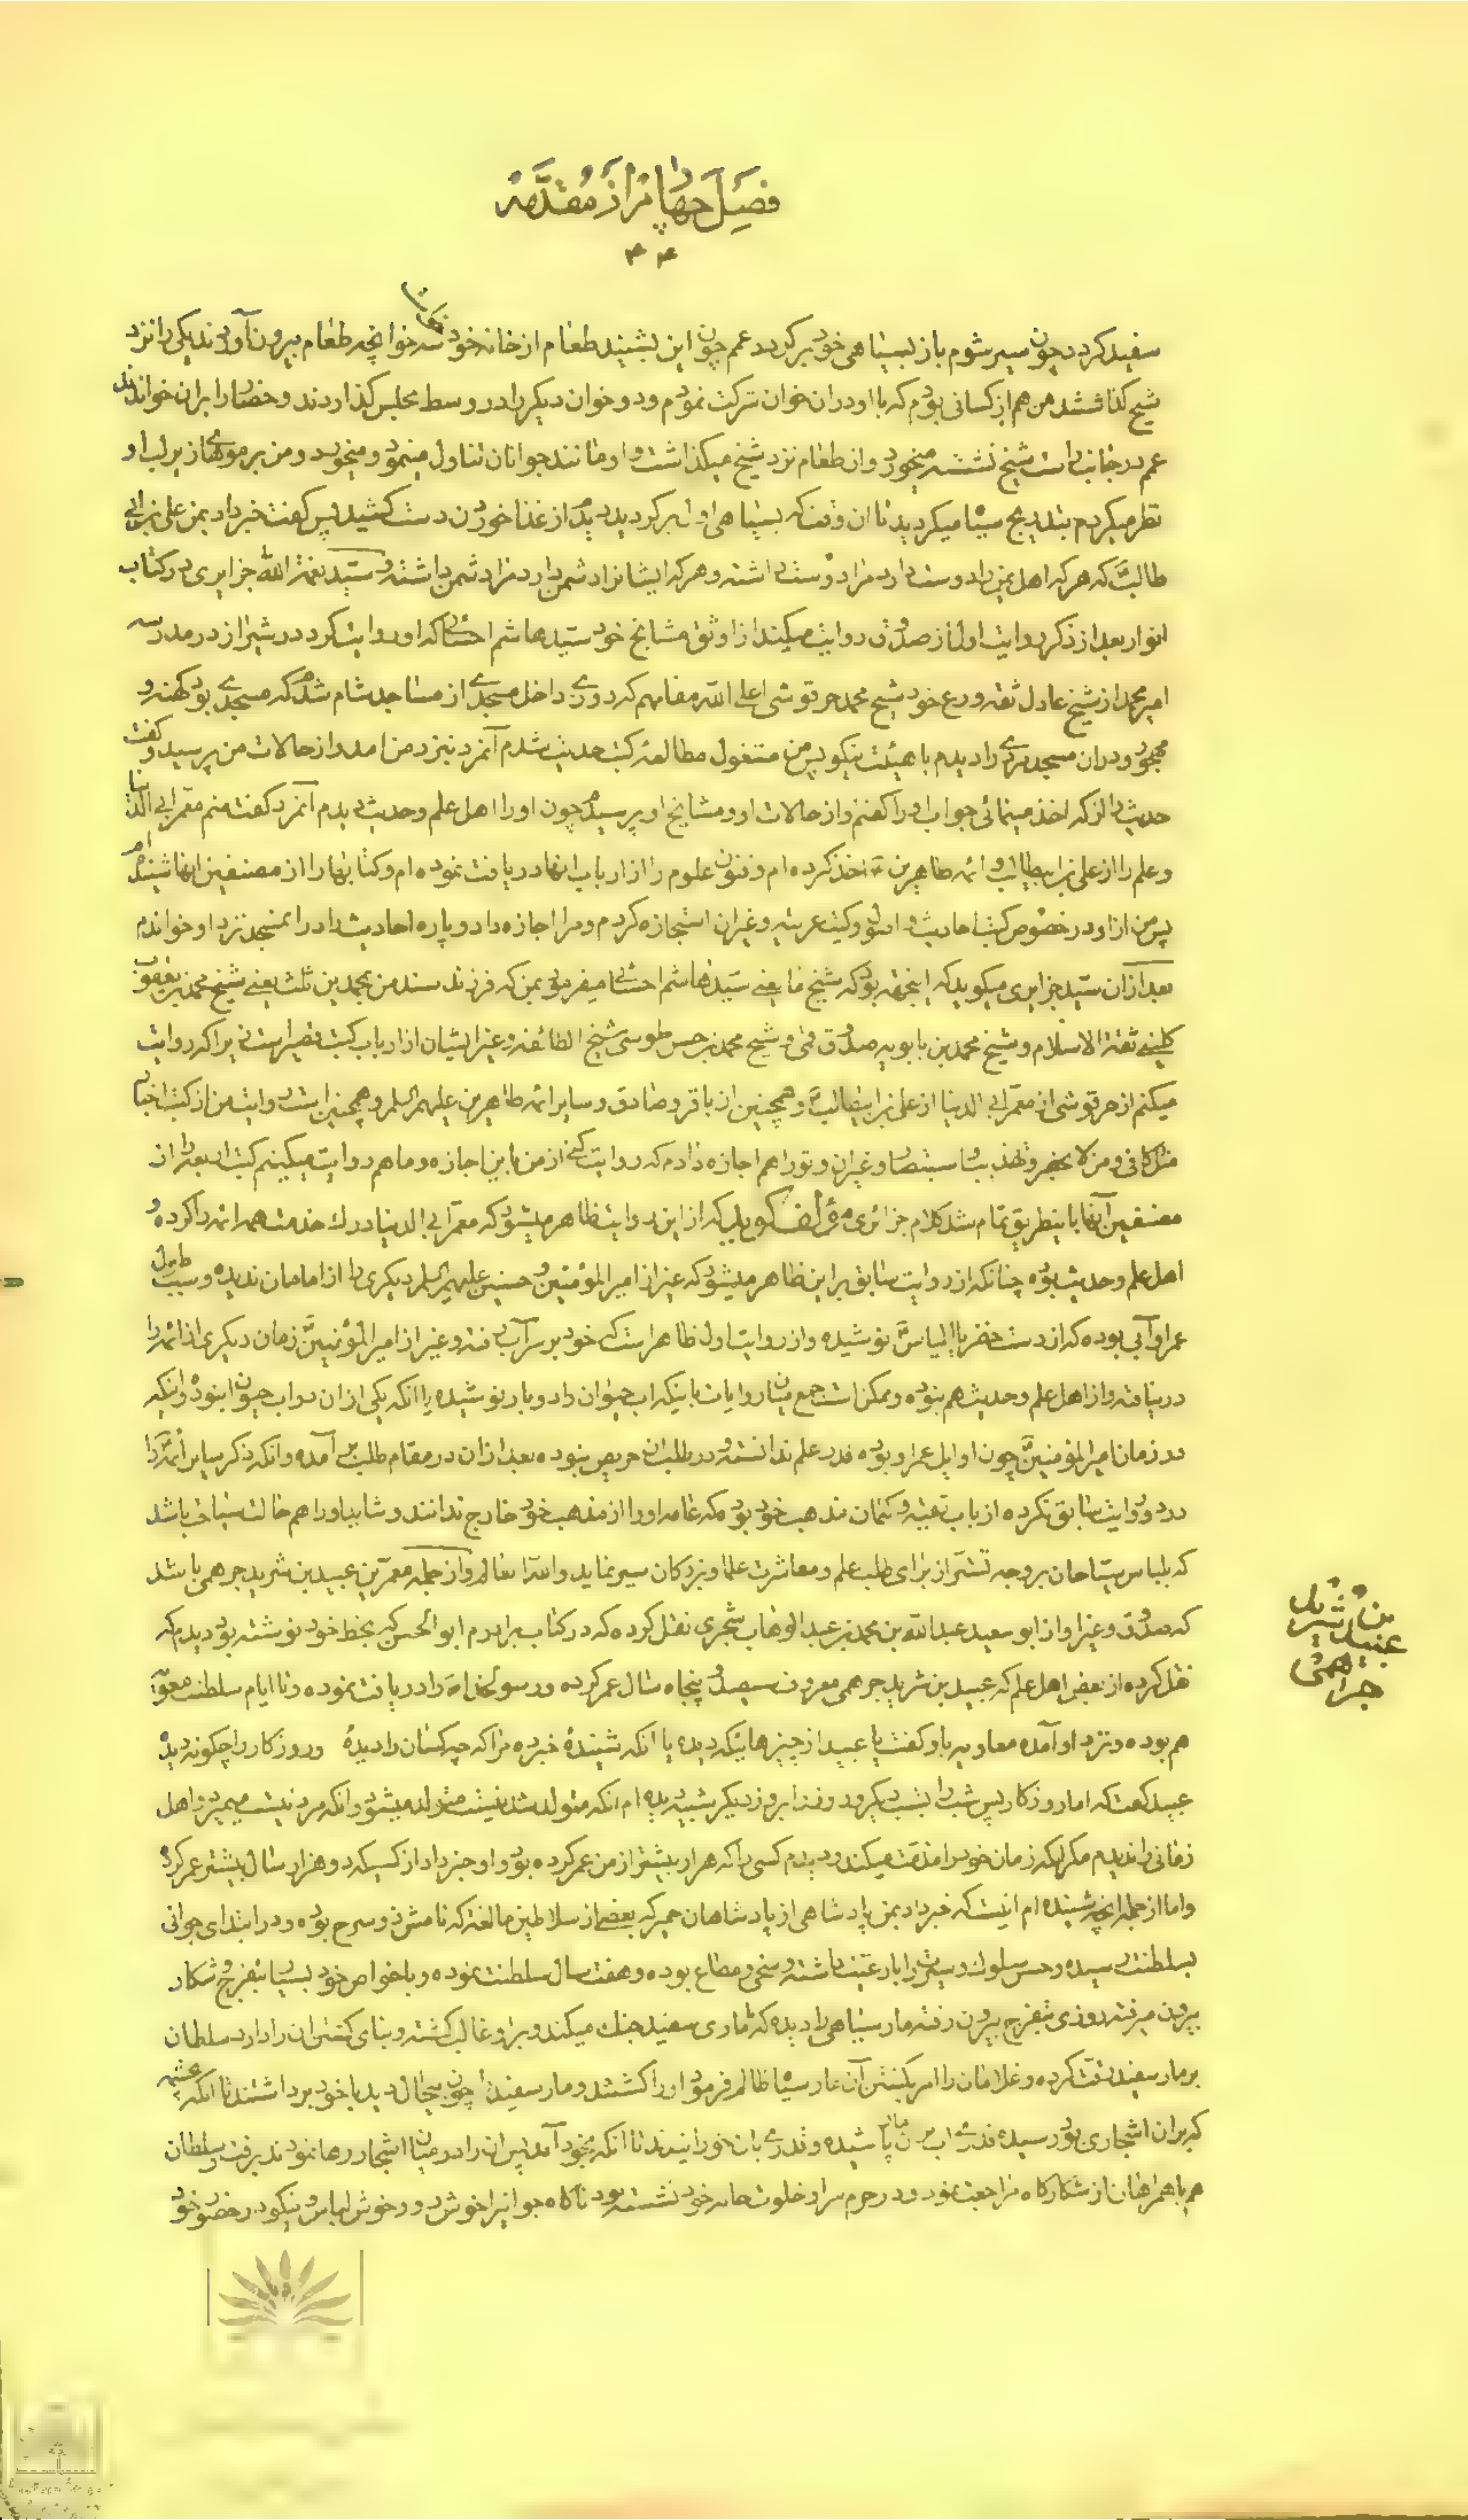 فصل چهارم از مقدمه
۴۴
سفید کردد چون سیر شوم باز بسیاهی خود برکردد عمم چون این بشنید طعام از خانه خود سه خوانچه طعام بیرون آوردند یکی را نزد
شیخ کذاشتند من هم از کسانی بودم که با او در ان خوان شرکت نمودم و دو خوان دیکر را در وسط مجلس کذاردند و حضار را بران خواندند
عمم در جانب راست شیخ نشسته میخورد و از طعام نزد شیخ میکذاشت و او مانند جوانان تناول مینمود و میخورد و من بر موهای زیر لب او
نظر میکردم بتدریج سیاه میکردید تا ان وقت که بسیاهی اول برکردید پس از غذا خوردن دست کشید پس کفت خبر داد بمن علی بن ابی
طالب که هر که اهل یمن را دوست دارد مرا دوست داشته و هر که ایشانرا دشمن دارد مرا دشمن داشته و سید نعمة الله جزایری در کتاب
انوار بعد از ذکر روایت اول از صدوق روایت میکند از اوثق مشایخ خود سید هاشم احسائی که او روایت کرد در شیراز در مدرسه
امیر محمد از شیخ عادل ثقه ورع خود شیخ محمد حرفوشی اعلی الله مقامهم که روزی داخل مسجدی از مساجد شام شدم که مسجدی بود کهنه و
مهجور و در ان مسجد مردی را دیدم با هیئت نیکو پس من مشغول مطالعه کتب حدیث شدم آنمرد نیز نزد من امد و از حالات من پرسید و کفت
حدیث را از که اخذ مینمائی جواب او را کفتم و از حالات او و مشایخ او پرسیدم چون او را اهل علم و حدیث دیدم آنمرد کفت منم معمر ابی الدنیا
و علم را از علی بن ابیطالب و ائمه طاهرین اخذ کرده ام و فنون علوم را از ارباب انها دریافت نموده ام و کتابها را از مصنفین انها شنیده ام
پس من از او در خصوص کتب احادیث و اصول و کتب عربیه و غیر ان استجازه کردم و مرا اجازه داد و پاره احادیث را در انمسجد نزد او خواندم
بعد از ان سید جزایری میکوید که اینجهة بود که شیخ ما یعنی سید هاشم احسائی میفرمود بمن که فرزند سند من بمحمدین ثلث یعنی شیخ محمد بن یعقوب
کلینی ثقة الاسلام و شیخ محمد بن بابویه صدوق قمی و شیخ محمد بن حسن طوسی شیخ الطائفه و غیر ایشان از ارباب کتب قصیر است زیرا که روایت
میکنم از حرفوشی از معمر ابی الدنیا از علی بن ابیطالب و همچنین از باقر و صادق و سایر ائمه طاهرین علیهم السلم و همچنین است روایت من از کتب اخبار
مثل کافی و من لا یحضر و تهذیب و استبصار و غیر ان و تو را هم اجازه دادم که روایت کنی از من باین اجازه و ما هم روایت میکنیم کتب اربعه را از
مصنفین آنها باینطریق تمام شد کلام جزائری مؤلف کوید که از این روایت ظاهر میشود که معمر ابی الدنیا درک خدمت همه ائمه را کرده و
اهل علم و حدیث بوده چنانکه از روایت سابق بر این ظاهر میشود که غیر از امیر المؤمنین و حسنین علیهم السلم دیکری را از امامان ندیده و سبب طول
عمر او آبی بوده که از دست خضر یا الیاس نوشیده و از روایت اول ظاهر است که خود بر سر آب رفته و غیر از امیر المؤمنین زمان دیکری از ائمه را
درنیافته و از اهل علم و حدیث هم نبوده و ممکن است جمع میان روایات باینکه اب حیوان را دو بار نوشیده یا انکه یکی از ان دو اب حیوان نبوده و اینکه
در زمان امیر المؤمنین چون اوایل عمر او بوده قدر علم ندانسته و در طلب ان حریص نبوده بعد از ان در مقام طلب بر آمده و انکه ذکر سایر ائمه را
در دو روایت سابق نکرده از باب تقیه و کتمان مذهب خود بوده که عامه او را از مذهب خود خارج ندانند و شاید او را هم حالت سیاحت باشد
که بلباس سیاحان بر وجه تستر از برای طلب علم و معاشرت علما و بزرکان سیر نماید والله العالم و از جمله معمرین عبید بن شرید جرهمی باشد
که صدوق و غیر او از ابو سعید عبد الله بن محمد بن عبد الوهاب شجری نقل کرده که در کتاب برادرم ابو الحسن که بخط خود نوشته بود دیدم که
نقل کرده از بعض اهل علم که عبید بن شرید جرهمی معروف سیصد و پنجاه سال عمر کرده و رسول خدا را دریافت نموده و تا ایام سلطنت معویه
هم بوده و نزد او آمده معاویه باو کفت یا عبید از چیزهائیکه دیده یا انکه شنیده خبر ده مرا که چه کسان را دیده و روزکار را چکونه دیده
عبید کفت که اما روزکار پس شب را بشب دیکر و روز را بروز دیکر شبیه دیده ام انکه متولد شدنیست متولد میشود و انکه مردنیست میمیرد و اهل
زمانی را ندیدم مکر انکه زمان خود را مذمت میکنند و دیدم کسی را که هزار بیشتر از من عمر کرده بود و او خبر داد از کسیکه دو هزار سال بیشتر عمر کرده
و اما از جمله انچه شنیده ام اینست که خبر داد بمن پادشاهی از پادشاهان حمیر که بعضی از سلاطین که نامش ذو سرح بوده و در ابتدای جوانی
بسلطنت رسیده و حسن سلوک و سیرت را با رعیت داشته و سخی و مطاع بوده و هفت سال سلطنت نموده و با خواص خود بسیار بتفرج و شکار
بیرون میرفته روزی بتفرج بیرون رفته مار سیاهی را دیده که با ماری سفید جنک میکند و بر او غالب کشته و بنای کشتن ان را دارد سلطان
بر مار سفید رقت کرده و غلامان را امر بکشتن آن مار سیاه ظالم فرمود او را کشتند و مار سفید را چون بیحال دید با خود برداشتند تا انکه بچشمه
که بران اشجاری بود رسیده قدری اب بر ان مار پاشیده و قدری بان خورانیدند تا انکه بخود آمد پس ان را در میان اشجار رها نمودند برفت و سلطان
هم با همراهان از شکارکاه مراجعت نمود و در حرم سرا و خلوت خانه خود نشسته بود ناکاه جوانی را خوش رو و خوش لباس و نیکو در حضور خود
عبید بن شرید جرهمی